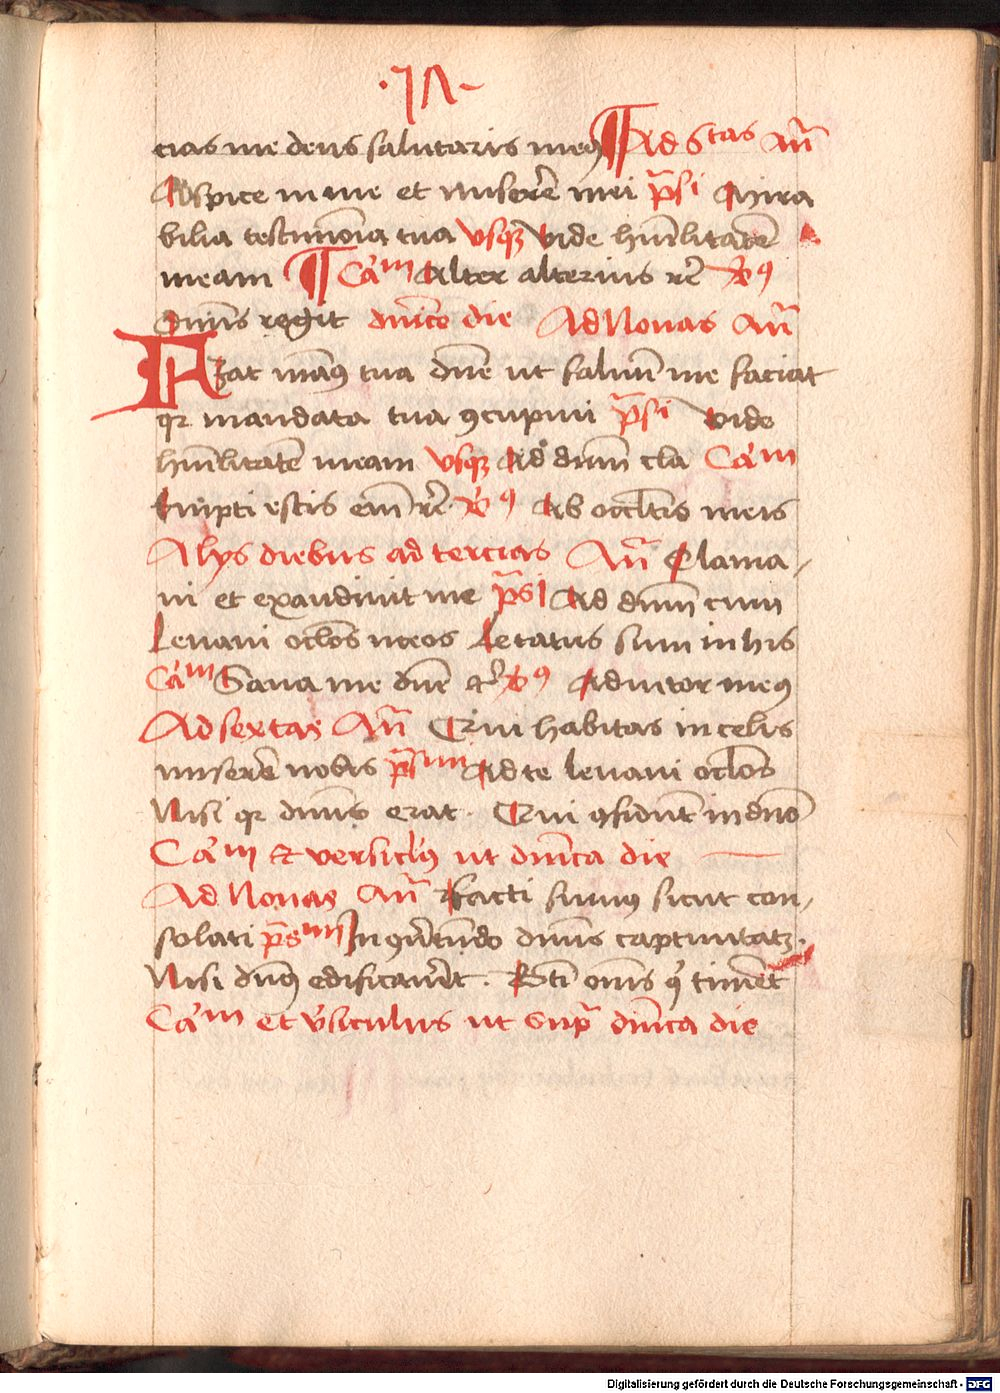 cias me deus salutaris meꝰ Ad Sᵉxtas An̄
Aspice in me et miserē mei p̄s Mira
bilia testimōia tua vsqꝫ vide hūilitatē
meam Cāᵐ Alter alterius rc̄ vꝰ
Dn̄s regit dn̄ica die Ad Nonas An̄
Fiat manꝰ tua dn̄e ut saluū me faciat
qꝛ mandata tua ꝯcupiui p̄s vide
hūilitatē meam vsqꝫ Ad dn̄m cla Cāᵐ
Empti estis em̄ rc̄ vꝰ Ab occl̄tis meis
Alijs diebus ad tercias An̄ Clama-
ui et exaudiuit me p̄s Ad dn̄m cum
Leuaui ocl̄os meos Letatus sum in his
Cāᵐ Sana me dn̄e rc̄ vꝰ Adiutor meꝰ
Ad sextas An̄ Qui habitas in celis
miserē nobis p̄s Ad te leuaui ocl̄os
Nisi qꝛ dn̄s erat Qui ꝯfidunt in dn̄o
Cāᵐ et versiclꝰ ut dn̄ica die
Ad Nonas An̄ Facti sumꝰ sicut con-
solati p̄s In ꝯu̓tendo dn̄s captiuitatꝫ
Nisi dn̄s edificaue̓it . Bti om̄s qͥ timēt
Cāᵐ et v̓siculus ut supᵃ dn̄ica die
Digitalisierung gefördert durch die Deutsche Forschungsgemeinschaft - DFG